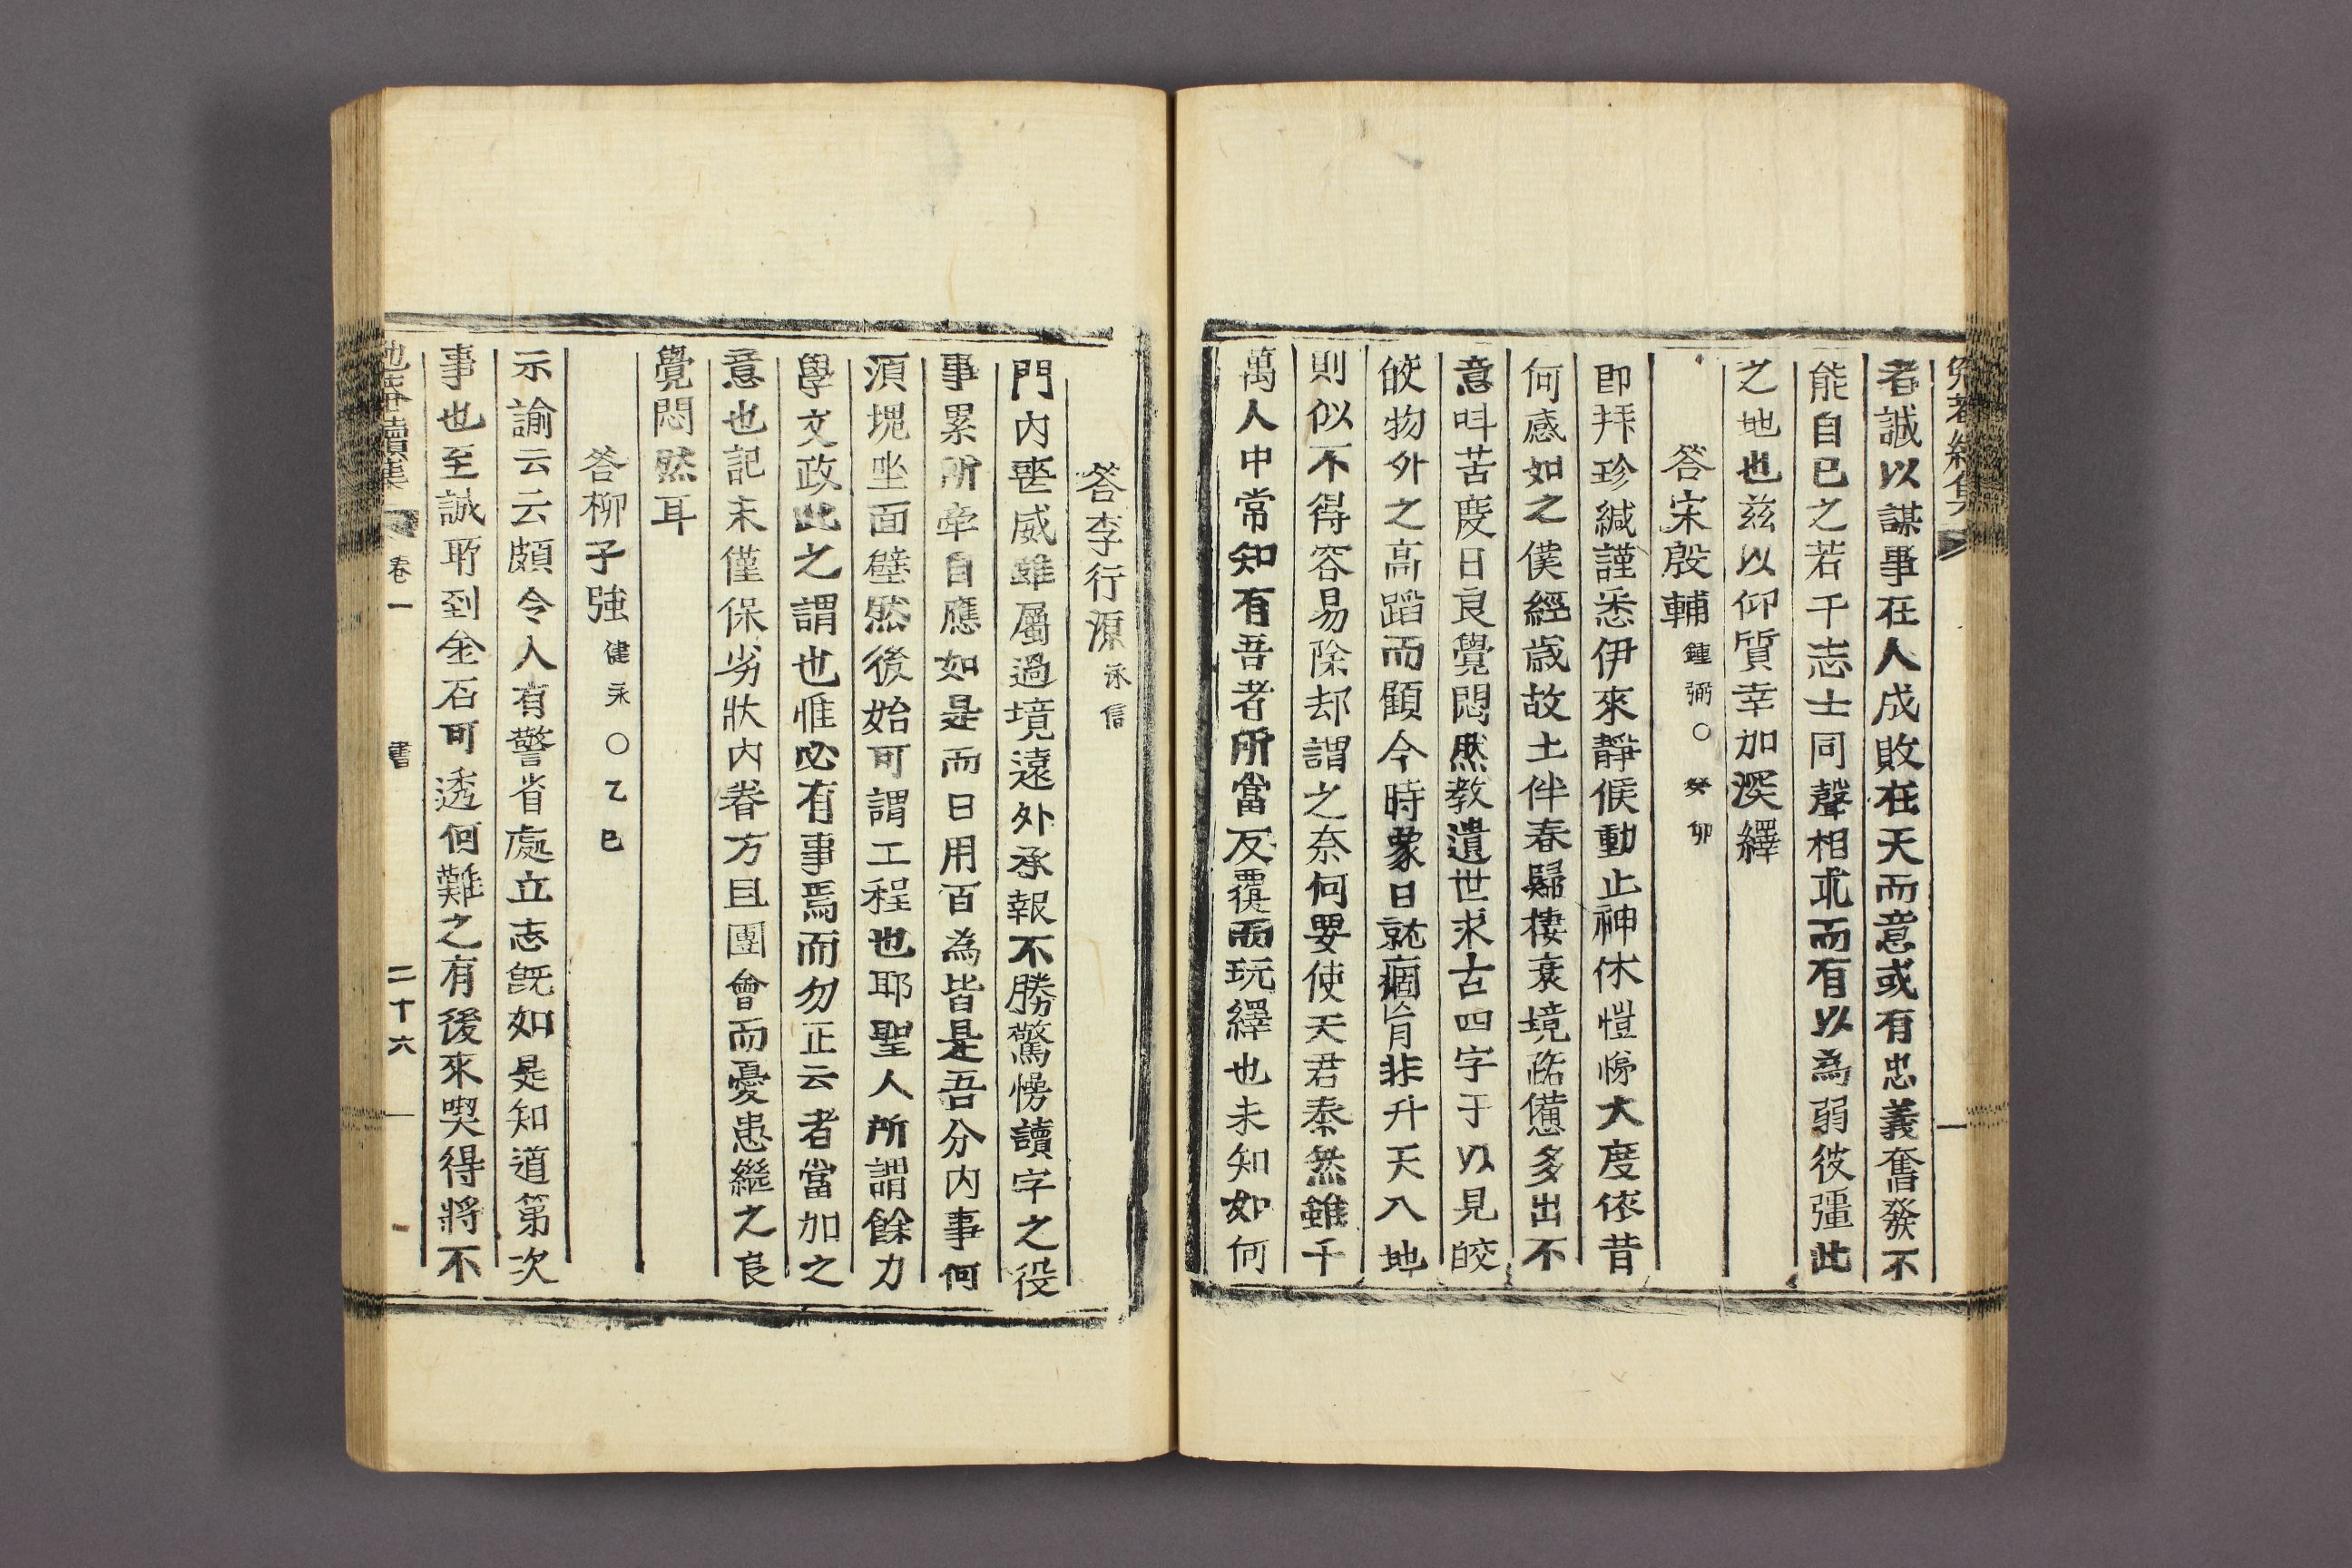 者誠以謀事在人成敗在天而意或有忠義奮發不
能自已之若千志士同聲相求而有以為弱彼彊此
之地也玆以仰質幸加深繹
答宋殷輔 鍾弼○癸卯
即拜珍緘謹悉伊來靜候動止神休愷悌大度依昔
何感如之僕經歲故土伴春歸棲衰境疲憊多出不
意呌苦度日良覺悶然教遺世求古四字于以見皎
皎物外之高蹈而顧今時象日就痼肓非升天入地
則似不得容易除却謂之奈何要使天君泰然雖千
萬人中常知有吾者所當反覆而玩繹也未知如何
答李行源 泳信
門內喪威雖屬過境遠外承報不勝驚愕讀字之役
事累所牽自應如是而日用百為皆是吾分內事何
須塊坐面壁然後始可謂工程也耶聖人所謂餘力
學文政此之謂也惟必有事焉而勿正云者當加之
意也記末僅保劣狀內眷方且團會而憂患繼之良
覺悶然耳
答柳子強 健永○乙巳
示諭云云頗令人有警省處立志旣如是知道第次
事也至誠所到金石可透何難之有後來喫得將不
續集 卷一 書 二十六